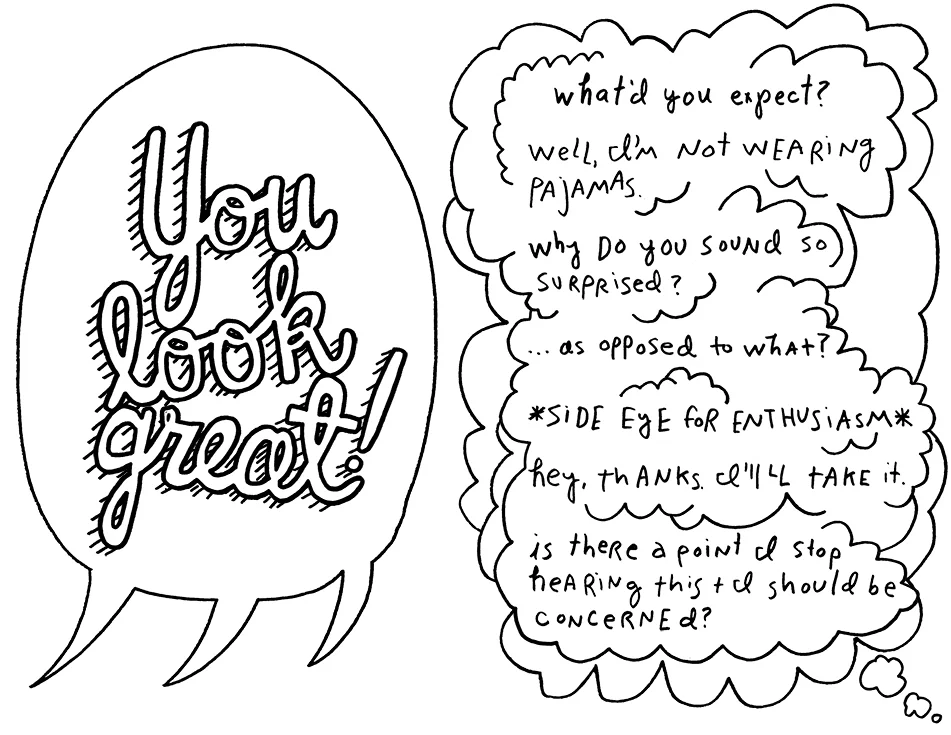 You
look
great!
what'd you expect?
well, I'm NOT WEARING
PAJAMAS.
why DO you SOUND so
SURPRised?
... as opposed to WHAt?
*SIDE EyE foR ENTHUSIASM*
hey, thANKS. I'll TAKE it.
is theRe a point I stop
heARiNg this + I should be
CONCeRNEd?